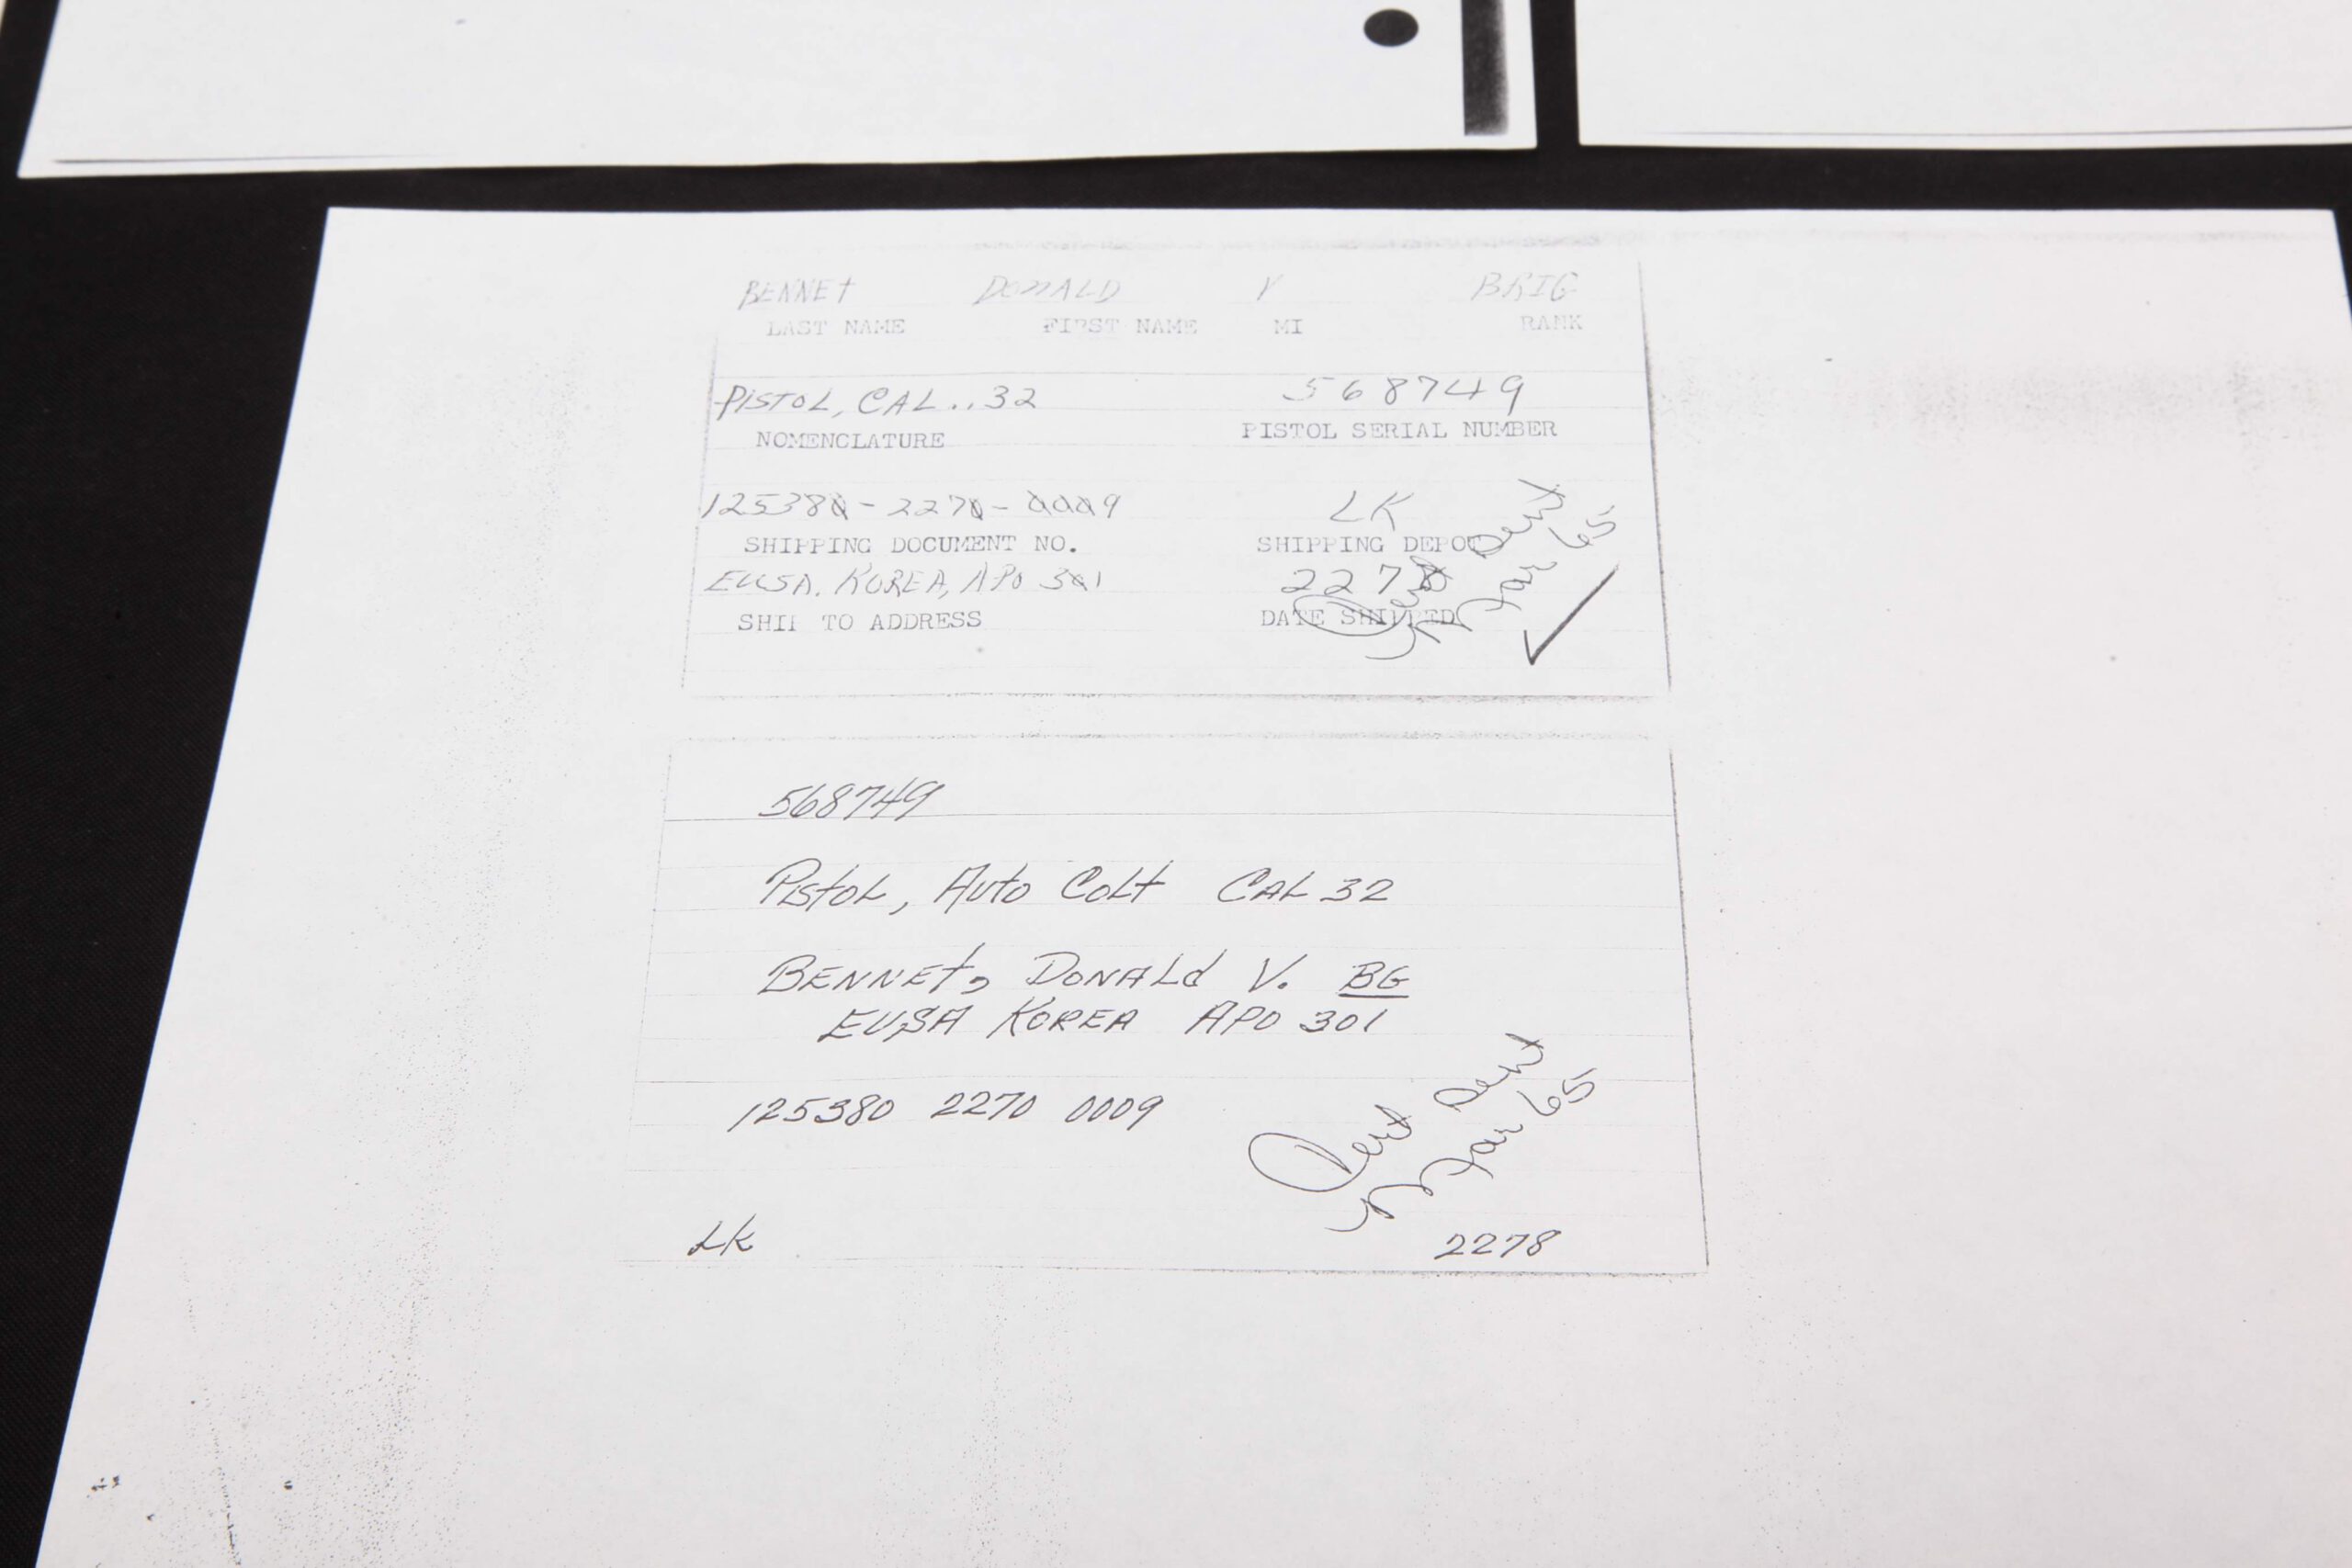 BENNEt DONALD V BRIG
LAST NAME FIRST NAME MI RANK
PISTOL, CAL..32 568749
NOMENCLATURE PISTOL SERIAL NUMBER
125380-2270-0009 LK
SHIPPING DOCUMENT NO. SHIPPING DEPOT
EUSA, KOREA, APO 301 2278
SHIP TO ADDRESS DATE SHIPPED
Mar 65
568749
Pistol, Auto Colt CAL 32
BENNEt, DONALd V. BG
EUSA KOREA APO 301
125380 2270 0009
Mar 65
LK 2278